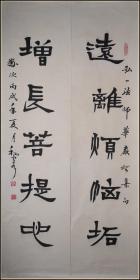 弘一法師華嚴集句
遠離煩惱垢
增長菩提心
歲次丙戌年夏月